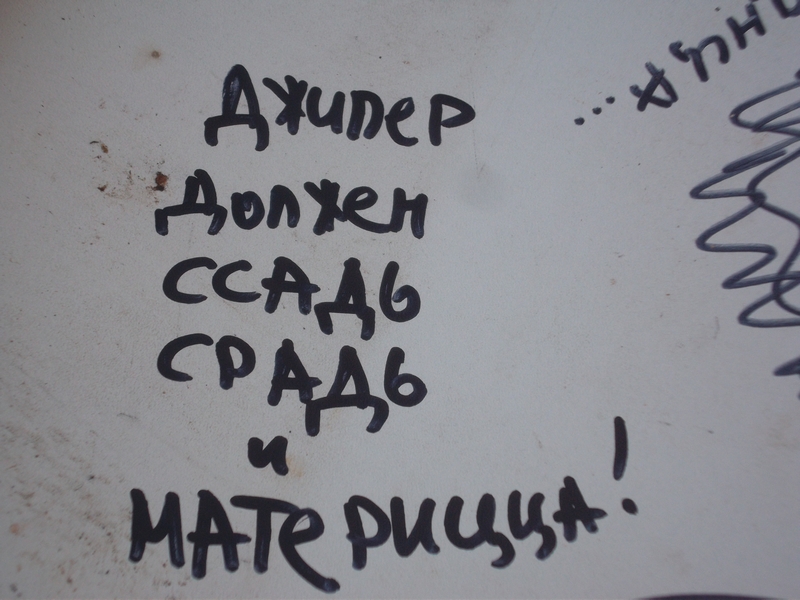 Джипер
Должен
ССАДЬ
СРАДЬ
и
МАТЕРИЦЦА!